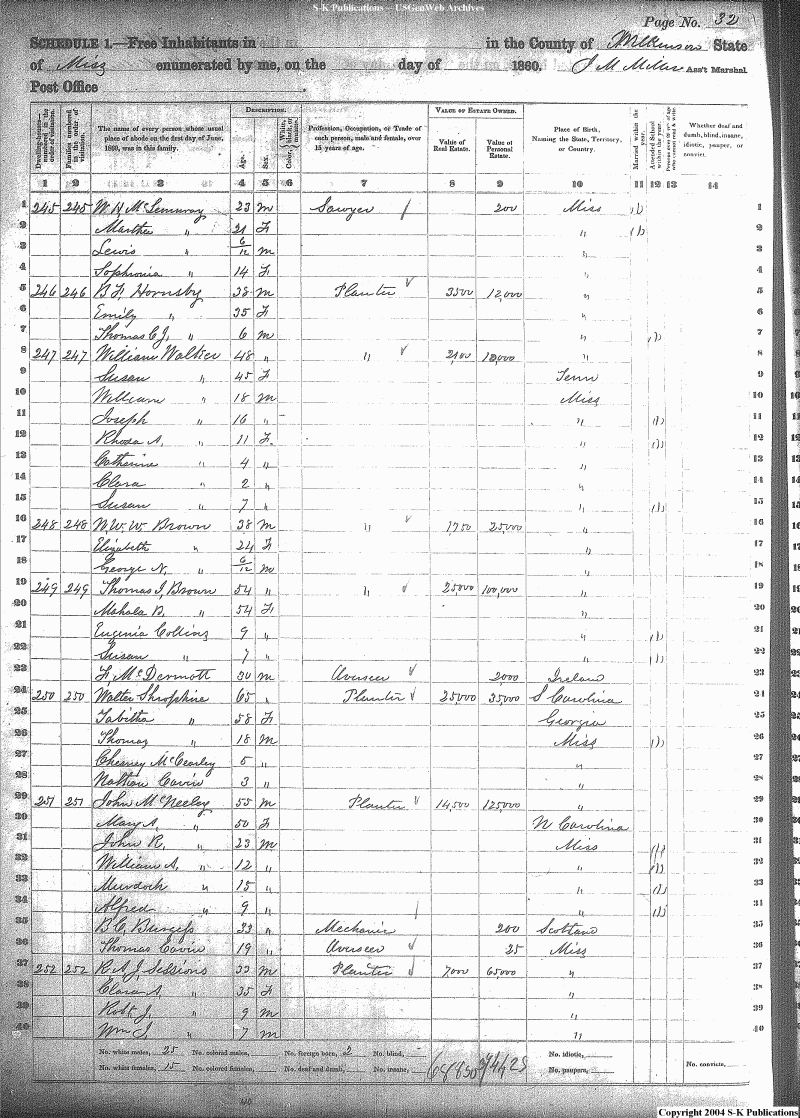 S-K Publications – USGenWeb Archives
Page No. 32
SCHEDULE 1.—Free Inhabitants in in the County of Wilkinson State
of Miss enumerated by me, on the day of 1860. J M Miller Ass't Marshal
Post Office
Dwelling-houses—numbered in the order of visitation.
Families numbered in the order of visitation.
The name of every person whose usual place of abode on the first day of June, 1860, was in this family.
DESCRIPTION.
Age.
Sex.
Color, White, black, or mulatto.
Profession, Occupation, or Trade of each person, male and female, over 15 years of age.
VALUE OF ESTATE OWNED.
Value of Real Estate.
Value of Personal Estate.
Place of Birth, Naming the State, Territory, or Country.
Married within the year.
Attended School within the year.
Persons over 20 y'rs of age who cannot read & write.
Whether deaf and dumb, blind, insane, idiotic, pauper, or convict.
1 2 3 4 5 6 7 8 9 10 11 12 13 14
1 245 245 W. H. 23 m Sawyer / 200 Miss 1
2 Martha " 21 F " 2
3 Lewis " 6/12 m " 3
4 Sophronia " 14 F " 4
5 246 246 B. F. Hornsby 38 m Planter 3500 12,000 " 5
6 Emily " 35 F " 6
7 Thomas C. J. " 6 m " 7
8 247 247 William 48 " " 2100 10,000 " 8
9 Susan " 45 F Tenn 9
10 William " 18 m Miss 10
11 Joseph " 16 " " 11
12 Rhoda A. " 11 F. " 12
13 Catharine " 4 " " 13
14 Clara " 2 " " 14
15 Susan " 7 " " 15
16 248 248 W. W. Brown 38 m " 1750 25000 " 16
17 Elizabeth " 24 F " 17
18 George N. " 6/12 m " 18
19 249 249 Thomas J. Brown 54 " " 25000 100,000 " 19
20 Mahala B. " 54 F " 20
21 Eugenia Collins 9 " " 21
22 Susan " 7 " " 22
23 F. McDermott 30 m Overseer 2000 Ireland 23
24 250 250 Walter Shropshire 65 " Planter 25,000 35000 S Carolina 24
25 Tabitha " 58 F Georgia 25
26 Thomas " 18 m Miss 26
27 Chesney McCearley 5 " " 27
28 Nathan Cavin 3 " " 28
29 251 251 John McNeeley 55 m Planter 14,500 125,000 " 29
30 Mary A. " 50 F N Carolina 30
31 John R. " 23 m Miss 31
32 William A. " 12 " " 32
33 Murdoch " 15 " " 33
34 Alfred " 9 " " 34
35 B. C. Burgess 33 " Mechanic 200 Scotland 35
36 Thomas Cavin 19 " Overseer 25 Miss 36
37 252 252 R. A. J. Sessions 33 m Planter 7000 65000 " 37
38 Clara A. " 35 F " 38
39 Robt J. " 9 m " 39
40 Wm J. " 7 m " 40
No. white males, 25 No. colored males, No. foreign born, 2 No. blind, No. idiotic,
No. white females, 15 No. colored females, No. deaf and dumb, No. insane, No. paupers, No. convicts,
Copyright 2004 S-K Publications